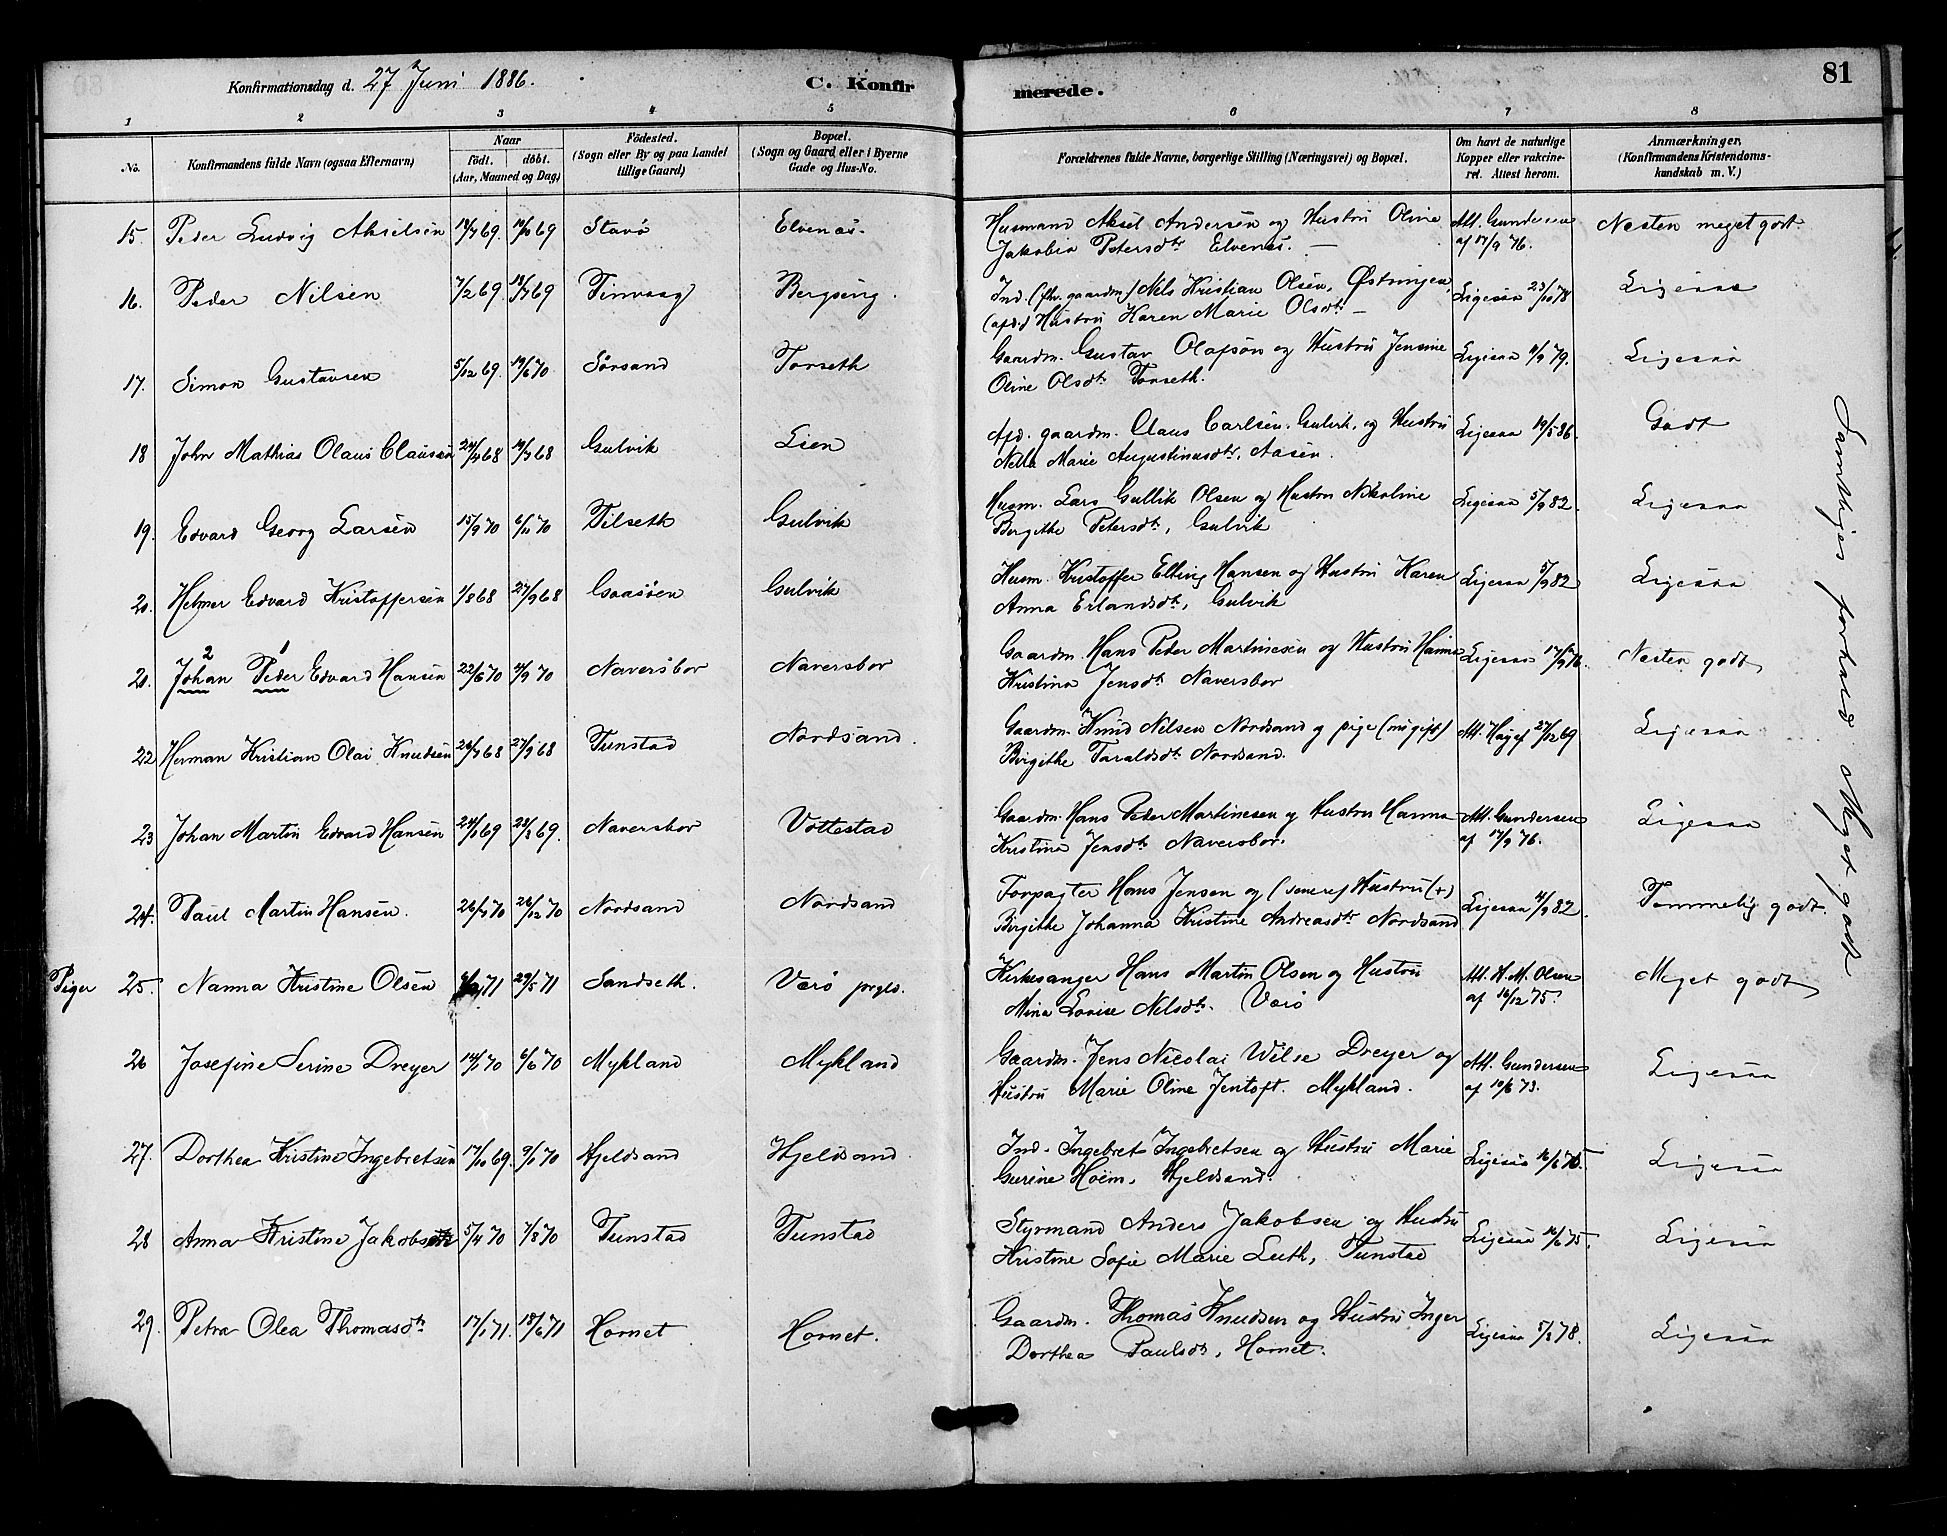 Konfirmationsdag d. 27 Juni 1886.
C. Konfirmerede.
81
1 2 3 4 5 6 7 8
No.
Konfirmandens fulde Navn (ogsaa Efternavn)
Naar
födt. döbt.
(Aar, Maaned og Dag)
Födested.
(Sogn eller By og paa Landet
tillige Gaard)
Bopæl.
(Sogn og Gaard eller i Byerne
Gade og Hus-No.
Forældrenes fulde Navne, borgerlige Stilling (Næringsvei) og Bopæl.
Om havt de naturlige
Kopper eller vakcine-
ret. Attest herom.
Anmærkninger,
(Konfirmandens Kristendoms-
kundskab m. V.)
15. Peder Ludvig Akselsen 69. 69 Stavö Elvenæs. Husmand Aksel Andersen og Hustru Oline Att. Gundersen Nesten meget godt
Jakobia Petersdtr Elvenæs. af 17/9 76.
16. Peder Nilsen 7/2 69 69 Finvaag Bergseng. Ind. (fhv. gaardm) Nels Kristian Olsen, Østringen, Ligesaa 23/10 78 Ligesaa
(afd.) Hustru Karen Marie Olsdtr
17. Simon Gustavsen 5/12 69. 19/6 70 Sörsand Torseth Gaardm. Gustav Olafsön og Hustru Jensine Ligesaa 79. Ligesaa
Oline Olsdtr Torseth.
18 John Mathias Olaus Clausen 68 68 Gulvik Lien Afd. gaardm. Claus Carlsen, Gulvik, og Hustru Ligesaa 19/5 86. Godt
Nella Marie Augustinusdtr, Aasen.
19. Edvard Georg Larsen 15/9 70 6/11 70 Tilseth Gulvik Husm. Lars Gullik Olsen og Hustru Nikoline Ligesaa 5/9 82. Ligesaa
Birgithe Petersdtr, Gulvik
20. Helmer Edvard Kristoffersen 1/8 68 27/9 68 Gaasöen Gulvik Husm. Kristoffer Elling Hansen og Hustru Karen Ligesaa 5/9 82 Ligesaa
Anna Erlandsdtr, Gulvik
2 1
21. Johan Peder Edvard Hansen 22/6 70 4/9 70 Naversbor Naversbor Gaardm. Hans Peder Martinesen og Hustru Hanna Ligesaa 17/9 76. Nesten godt
Kristina Jensdtr Naversbor
22 Herman Kristian Olai Knudsen 68 27/9 68 Tunstad Nordsand. Gaardm. Knud Nilsen Nordsand og pige (nu gift) Att. 27/12 69 Ligesaa
Birgithe Taraldsdtr Nordsand.
23 Johan Martin Edvard Hansen 69 69. Naversbor Vottestad Gaardm. Hans Peder Martinesen og Hustru Hanna Att. Gundersen Ligesaa
Kristina Jensdtr Naversbor. af 17/9 76.
24. Paul Martin Hansen. 70 26/12 70 Nordsand Nordsand Forpagter Hans Jensen og (senere) Hustru (+) Ligesaa 82. Temmelig godt.
Birgithe Johanna Kristine Andreasdtr Nordsand
Piger 25. Nanna Kristine Olsen 71 29/5 71 Sandseth. Værö prgld. Kirkesanger Hans Martin Olsen og Hustru Att. H. M. Olsen Meget godt
Mina Lovise Nelsdtr. Værö af 16/12 75.
26 Josefine Serine Dreyer 70 6/6 70 Mykland Mykland Gaardm. Jens Nicolai Wilse Dreyer og Att. Gundersen Ligesaa
Hustru Marie Oline Jentoft. Mykland. af 73.
27. Dorthea Kristine Ingebretsen 17/10 69. 9/1 70 Hjeldsand Hjeldsand. Ind. Ingebret Ingebretsen og Hustru Marie Ligesaa Ligesaa
Gurine Hoëm, Hjeldsand.
28 Anna Kristine Jakobsen 5/4 70 7/8 70 Tunstad Tunstad Styrmand Anders Jakobsen og Hustru Ligesaa 75. Ligesaa
Kristine Sofie Marie Luth, Tunstad
29. Petra Olea Thomasdtr 17/1 71. 18/6 71 Hornet Hornet. Gaardm. Thomas Knudsen og Hustru Inger Ligesaa 78. Ligesaa
Dorthea Paulsdtr, Hornet.
Samtliges forhold Meget godt